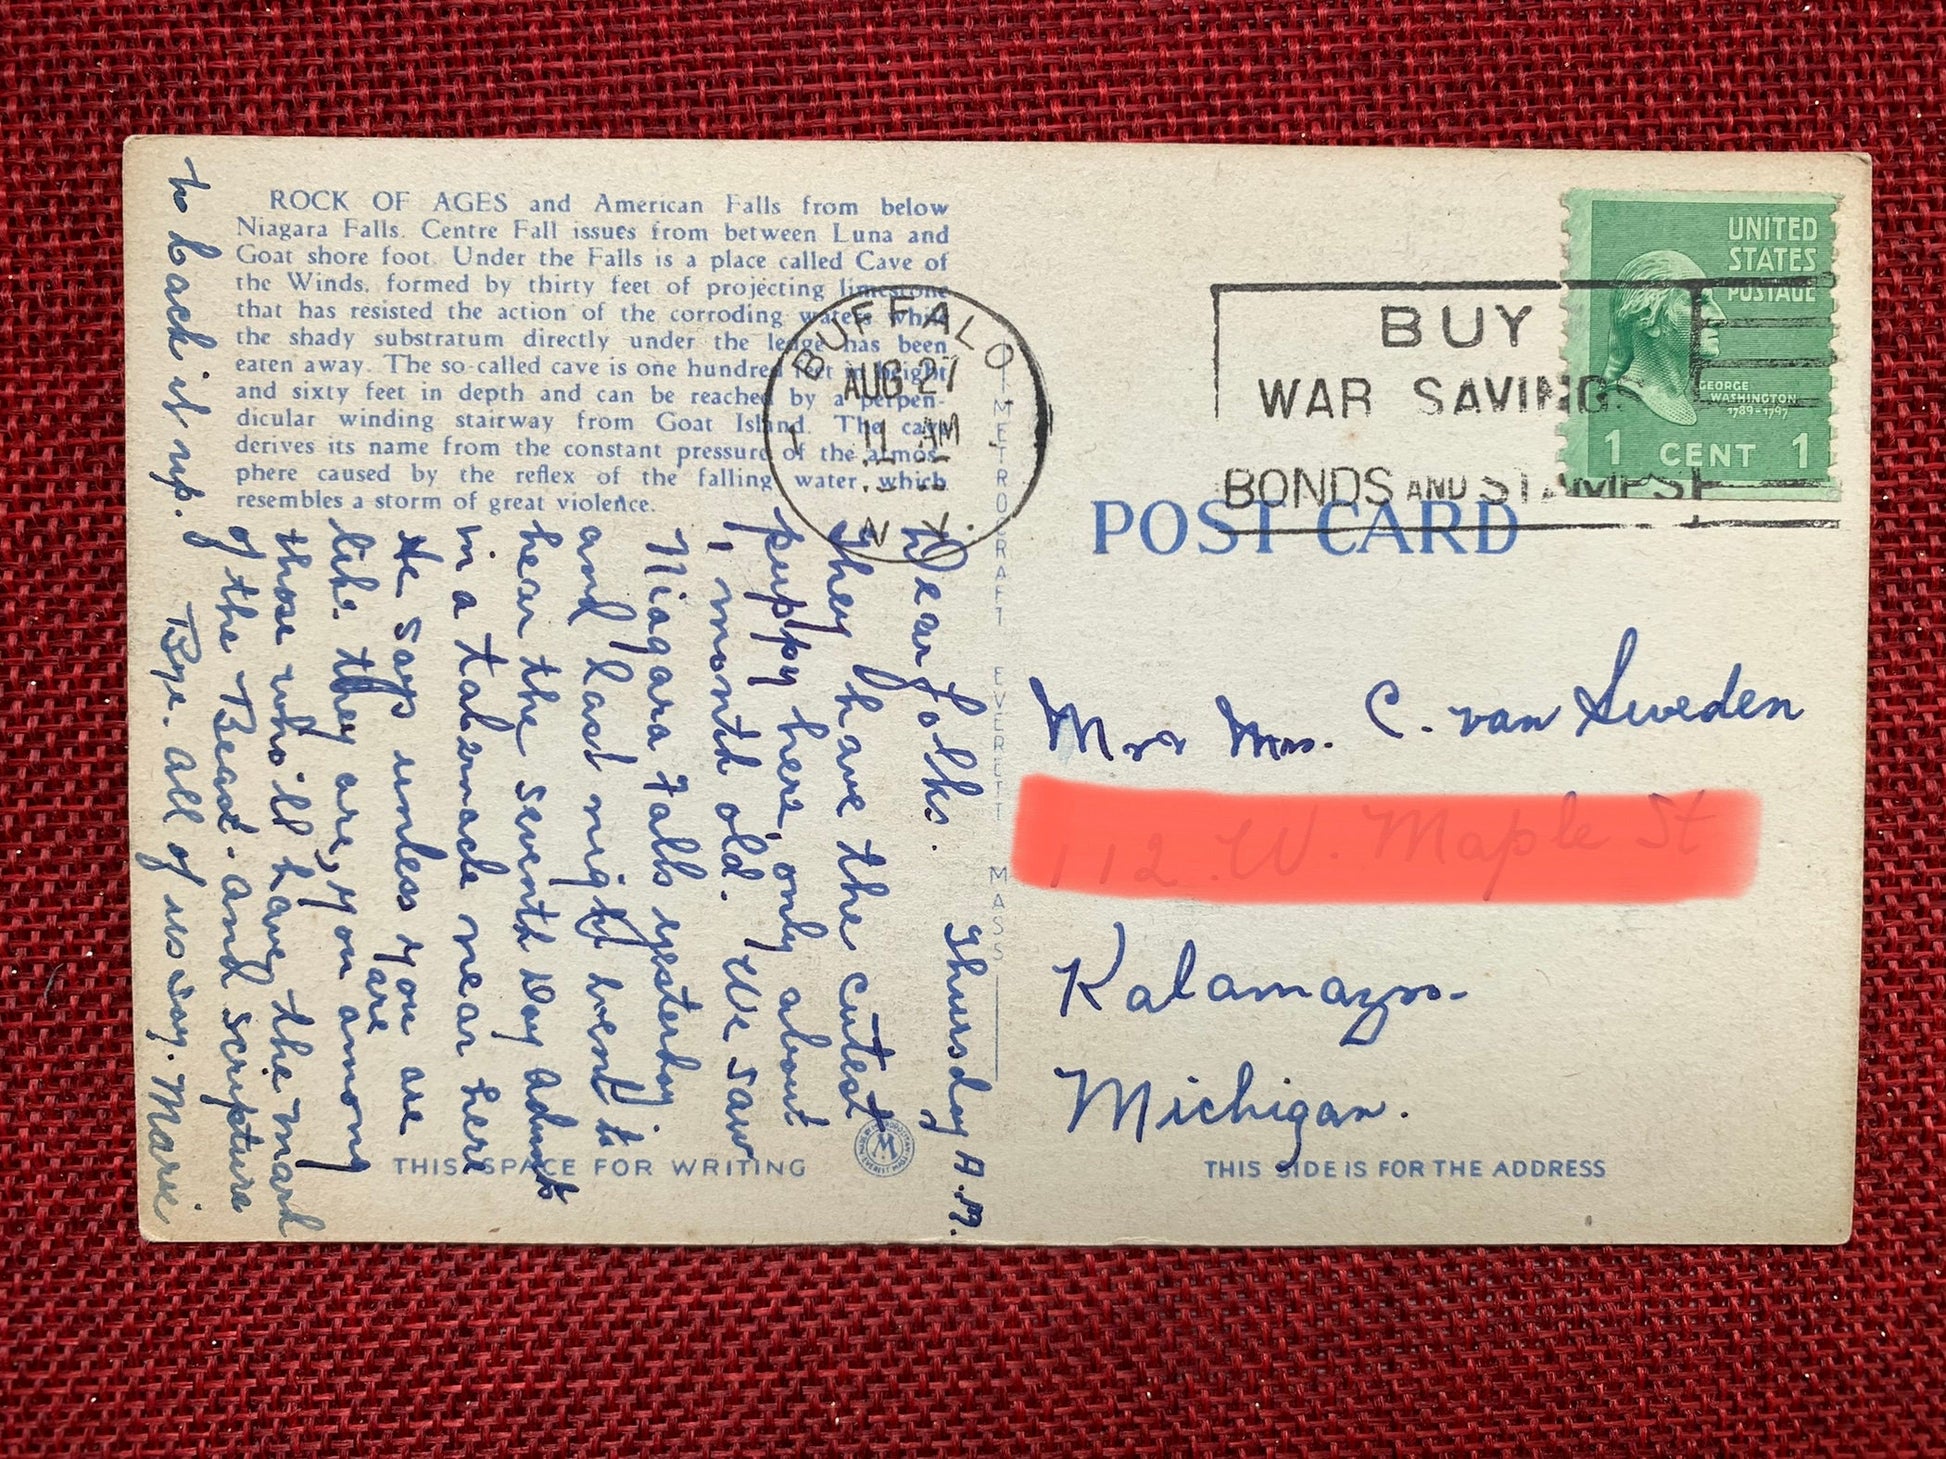 ROCK OF AGES and American Falls from below
Niagara Falls. Centre Fall issues from between Luna and
Goat shore foot. Under the Falls is a place called Cave of
the Winds, formed by thirty feet of projecting limestone
that has resisted the action of the corroding waters while
the shady substratum directly under the ledge has been
eaten away. The so-called cave is one hundred feet in height
and sixty feet in depth and can be reached by a perpen-
dicular winding stairway from Goat Island. The cave
derives its name from the constant pressure of the atmos-
phere caused by the reflex of the falling water, which
resembles a storm of great violence.
BUFFALO
AUG 27
11 AM
N.Y.
BUY
WAR SAVINGS
BONDS AND STAMPS
UNITED
STATES
POSTAGE
GEORGE
WASHINGTON
1789-1797
1 CENT 1
POST CARD
METROCRAFT EVERETT MASS
Dear folks. Thursday A.M.
They have the cutest
puppy here, only about
1 month old. We saw
Niagara Falls yesterday
and last night went to
hear the Seventh Day Adv
in a tabernacle near here
He says unless you are
like they are, you are among
those who'll have the mark
of the Beast. and scripture
to back it up.
Bye. All of us say. Marie
Mr & Mrs. C. van Sweden
Kalamazoo-
Michigan.
THIS SPACE FOR WRITING
THIS SIDE IS FOR THE ADDRESS